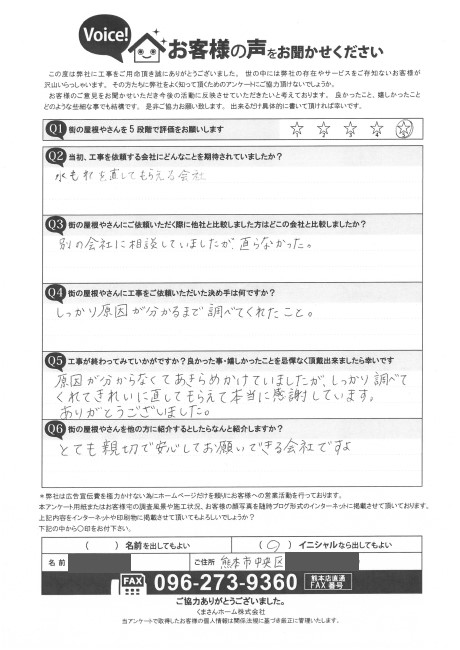 Voice!
お客様の声をお聞かせください
この度は弊社に工事をご用命頂き誠にありがとうございました。 世の中には弊社の存在やサービスをご存知ないお客様が
沢山いらっしゃいます。 その方たちに弊社をよく知って頂くためのアンケートにご協力頂けないでしょうか。
お客様のご意見をお聞かせいただき今後の活動に反映させていただきたいと考えております。 良かったこと、嬉しかったこと
どのような些細な事でも結構です。 是非ご協力お願い致します。 出来るだけ具体的に書いて頂ければ幸いです。
Q1 街の屋根やさんを5段階で評価をお願いします
1 2 3 4 5
Q2 当初、工事を依頼する会社にどんなことを期待されていましたか？
水もれを直してもらえる会社
Q3 街の屋根やさんにご依頼いただく際に他社と比較しました方はどこの会社と比較しましたか？
別の会社に相談していましたが、直らなかった。
Q4 街の屋根やさんに工事をご依頼いただいた決め手は何ですか？
しっかり原因が分かるまで調べてくれたこと。
Q5 工事が終わってみていかがですか？良かった事・嬉しかったことを忌憚なく頂戴出来ましたら幸いです
原因が分からなくてあきらめかけていましたが、しっかり調べて
くれてきれいに直してもらえて本当に感謝しています。
ありがとうございました。
Q6 街の屋根やさんを他の方に紹介するとしたらなんと紹介しますか？
とても親切で安心してお願いできる会社ですよ
＊弊社は広告宣伝費を極力かけない為にホームページだけを頼りにお客様への営業活動を行っております。
本アンケート用紙またはお客様宅の調査風景や施工状況、お客様の顔写真を随時ブログ形式のインターネットに掲載させて頂いております。
上記内容をインターネットや印刷物に掲載させて頂いてもよろしいでしょうか？
下記の中から〇印をお付下さい。
（ ）名前を出してもよい （○）イニシャルなら出してもよい
名前 ご住所 熊本市中央区
FAX 096-273-9360 熊本店直通 FAX番号
ご協力ありがとうございました。
くまさんホーム株式会社
当アンケートで取得したお客様の個人情報は関係法規に基づき厳正に管理いたします。